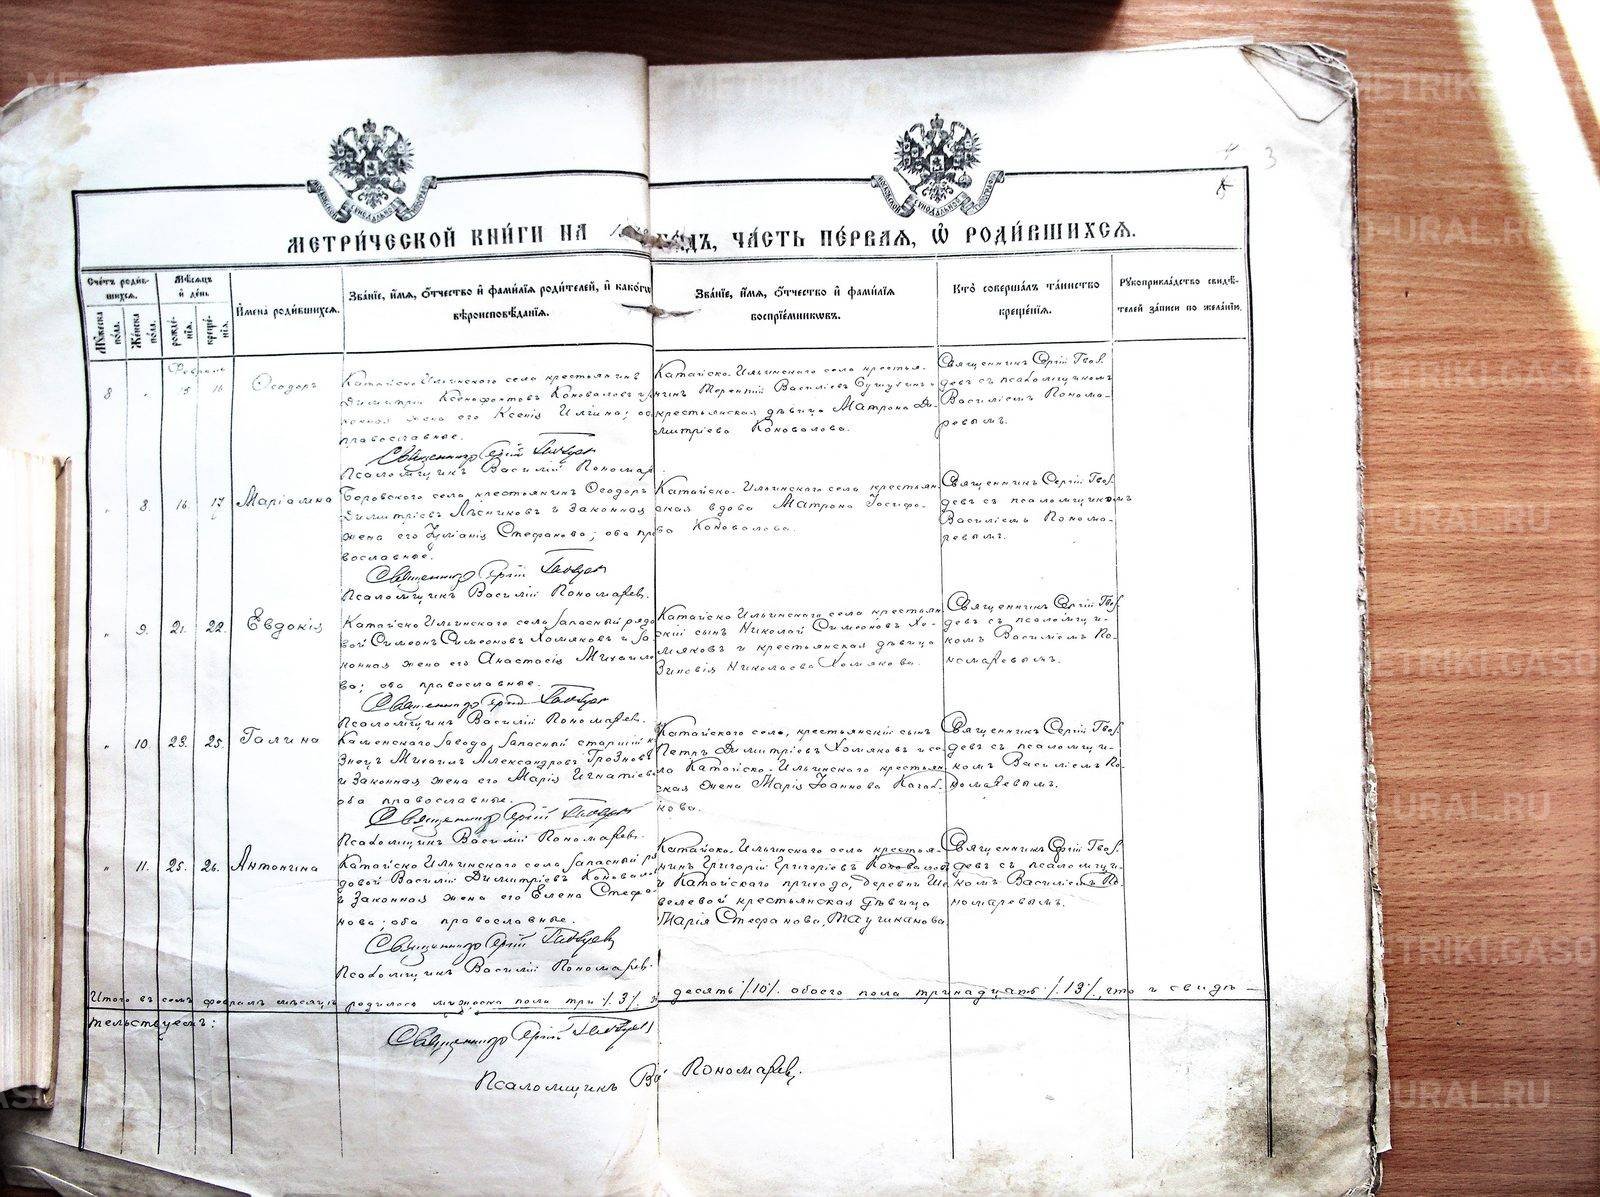 4
3
МЕТРИ́ЧЕСКОЙ КНИ́ГИ НА ГОДЪ, ЧА́СТЬ ПЕ́РВАЯ, Ѡ РОДИ́ВШИХСЯ.
Сче́тъ роди́вшихся.
Му́жеска по́ла.
Же́нска по́ла.
Мѣ́сяцъ и҆ де́нь
рожде́нїя.
креще́нїя.
И҆мена̀ роди́вшихся.
Зва́нїе, и҆́мя, ѻ҆́тчество и҆ фами́лїя роди́телей, и҆ како́гѡ
вѣроисповѣ́данїя.
Зва́нїе, и҆́мя, ѻ҆́тчество и҆ фами́лїя
воспрїе́мникѡвъ.
Кто̀ соверша́лъ та́инство
креще́нїя.
Рꙋкоприкла́дство свидѣ́-
телей за́писи по жела́нїи.
Февраль
8 " 15 16 Ѳеодоръ
Катайско-Ильинского села крестьянинъ
Димитрій Ксенофонтовъ Коноваловъ и за-
конная жена его Ксенія ; оба
православные.
Священникъ Сергій
Псаломщикъ Василій Пономар
Катайско-Ильинского села крестья-
нинъ Терентій Василіевъ и
крестьянская дѣвица Матрона Ди-
митріева Коновалова.
Священникъ Сергій Гвоз-
девъ съ псаломщикомъ
Василіемъ Понома-
ревымъ.
" 8. 16. 17 Маріамна
села крестьянинъ Ѳеодоръ
Димитріевъ Лѣсниковъ и законная
жена его Іуліанія Стефанова; оба пра
вославные.
Священникъ Сергій
Псаломщикъ Василій Пономаревъ.
Катайско-Ильинского села крестьян
ская вдова Матрона Іосифо-
ва Коновалова.
Священникъ Сергій Гвоз-
девъ съ псаломщикомъ
Василіемъ Понома-
ревымъ.
" 9. 21. 22. Евдокія
Катайско-Ильинского села запасный рядо
вой Симеонъ Симеоновъ Хомяковъ и за
конная жена его Анастасія Михаило
ва; оба православные.
Священникъ Сергій
Псаломщикъ Василій Пономаревъ.
Катайско-Ильинского села крестьян
скій сынъ Николай Симеоновъ Хо-
мяковъ и крестьянская дѣвица
Зиновія Николаева Хомякова.
Священникъ Сергій Гвоз-
девъ съ псаломщи-
комъ Василіемъ По-
номаревымъ.
" 10. 23. 25. Галина
Каменского завода, запасный старшій к
знецъ Михаилъ Александровъ Грозновъ
и законная жена его Марія Игнатіева
оба православные.
Священникъ Сергій
Псаломщикъ Василій Пономаревъ.
Катайского села, крестьянскій сынъ
Петръ Димитріевъ Хомяковъ и се-
ла Катайско-Ильинского крестьян
ская жена Марія Іоаннова
кова.
Священникъ Сергій Гвоз-
девъ съ псаломщи-
комъ Василіемъ По-
номаревымъ.
" 11. 25. 26. Антонина
Катайско-Ильинского села запасный ря
довой Василій Димитріевъ Коновалов
и законная жена его Елена Стефа-
нова; оба православные.
Священникъ Сергій
Псаломщикъ Василій Пономаревъ.
Катайско-Ильинского села крестья-
нинъ Григорій Григоріевъ Коновалов
и Катайского прихода, деревни Ше-
велевой крестьянская дѣвица
Марія Стефанова,
Священникъ Сергій Гвоз-
девъ съ псаломщи-
комъ Василіемъ По-
номаревымъ.
Итого въ семъ февралѣ мѣсяцѣ родилось мужеска пола три /.3/. десять /.10/. обоего пола тринадцать /.13/., что и свидѣ-
тельствуемъ:
Священникъ Сергій
Псаломщикъ Ва Пономаревъ.
METRIKI.GASO-URAL.RU